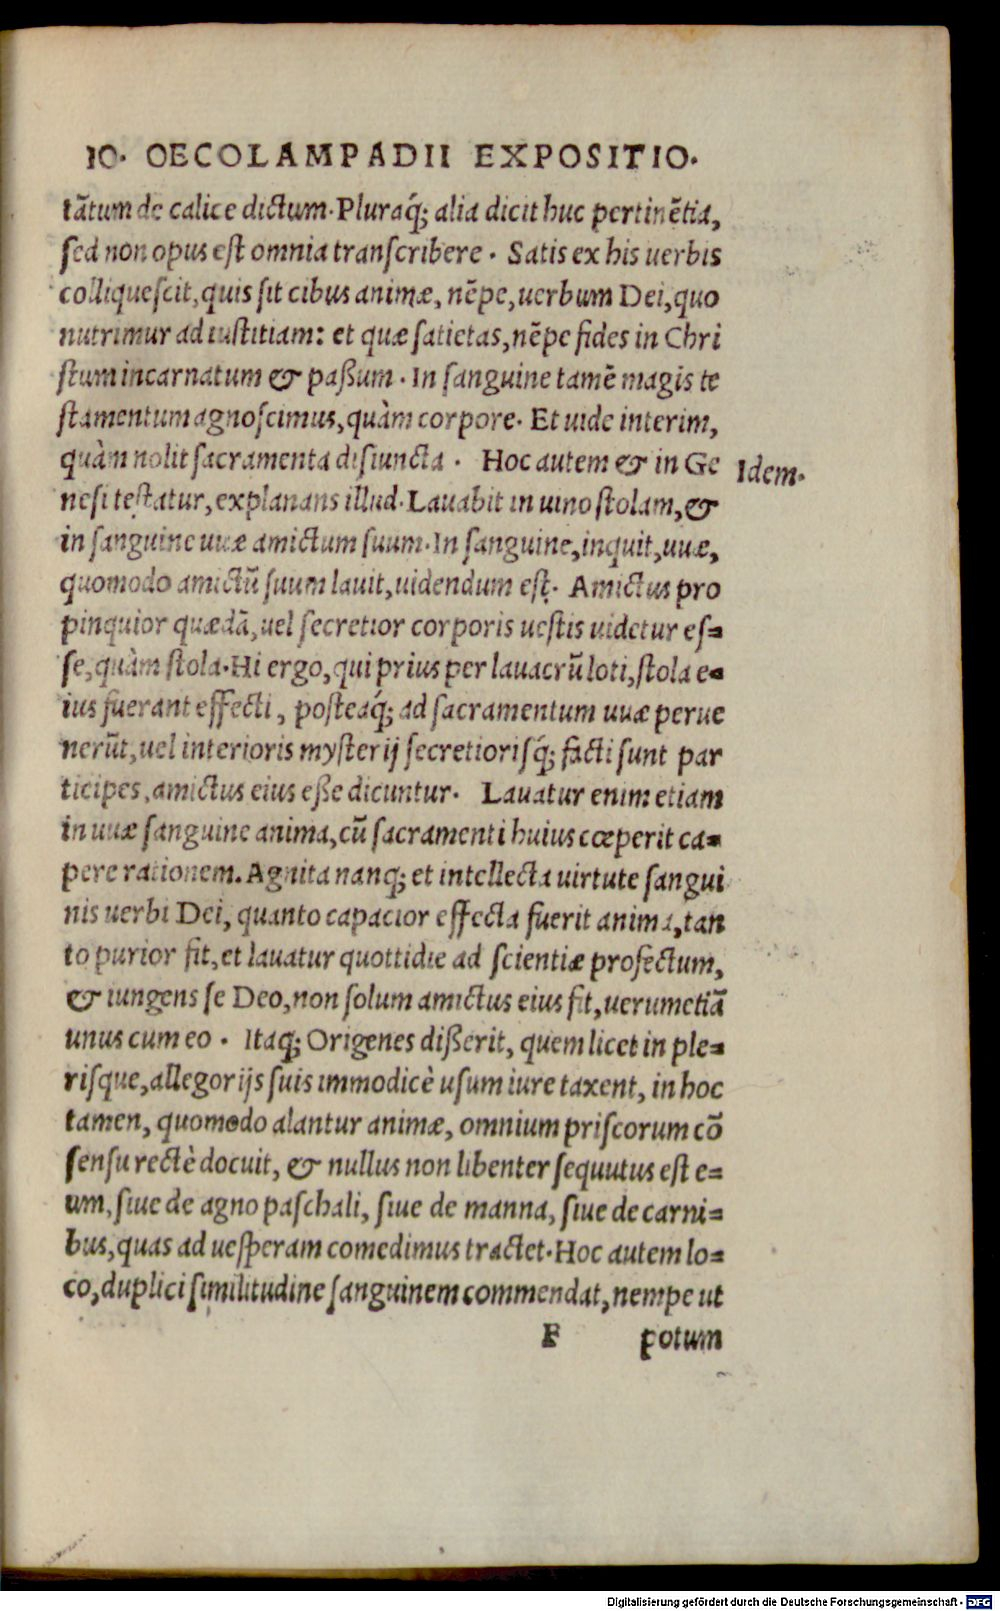 IO. OECOLAMPADII EXPOSITIO.
tãtum de calice dictum. Pluraq́; alia dicit huc pertinẽtia,
ſed non opus eſt omnia tranſcribere. Satis ex his uerbis
colliqueſcit, quis ſit cibus animæ, nẽpe, uerbum Dei, quo
nutrimur ad iuſtitiam: et quæ ſatietas, nẽpe fides in Chri
ſtum incarnatum & paßum. In ſanguine tamẽ magis te
ſtamentum agnoſcimus, quàm corpore. Et uide interim,
quàm nolit ſacramenta diſiuncta. Hoc autem & in Ge
Idem.
neſi teſtatur, explanans illud. Lauabit in uino ſtolam, &
in ſanguine uuæ amictum ſuum. In ſanguine, inquit, uuæ,
quomodo amictũ ſuum lauit, uidendum eſt. Amictus pro
pinquior quædã, uel ſecretior corporis ueſtis uidetur eſ=
ſe, quàm ſtola. Hi ergo, qui prius per lauacrũ loti, ſtola e=
ius fuerant effecti, poſteaq́; ad ſacramentum uuæ perue
nerũt, uel interioris myſterij ſecretioriſq́; facti ſunt par
ticipes, amictus eius eße dicuntur. Lauatur enim etiam
in uuæ ſanguine anima, cũ ſacramenti huius cœperit ca=
pere rationem. Agnita nanq; et intellecta uirtute ſangui
nis uerbi Dei, quanto capacior effecta fuerit anima, tan
to purior fit, et lauatur quottidie ad ſcientiæ profectum,
& iungens ſe Deo, non ſolum amictus eius fit, uerumetiã
unus cum eo. Itaq; Origenes dißerit, quem licet in ple=
riſque, allegorijs ſuis immodicè uſum iure taxent, in hoc
tamen, quomodo alantur animæ, omnium priſcorum cõ
ſenſu rectè docuit, & nullus non libenter ſequutus eſt e=
um, ſiue de agno paſchali, ſiue de manna, ſiue de carni=
bus, quas ad ueſperam comedimus tractet. Hoc autem lo=
co, duplici ſimilitudine ſanguinem commendat, nempe ut
F potum
Digitalisierung gefördert durch die Deutsche Forschungsgemeinschaft - DFG